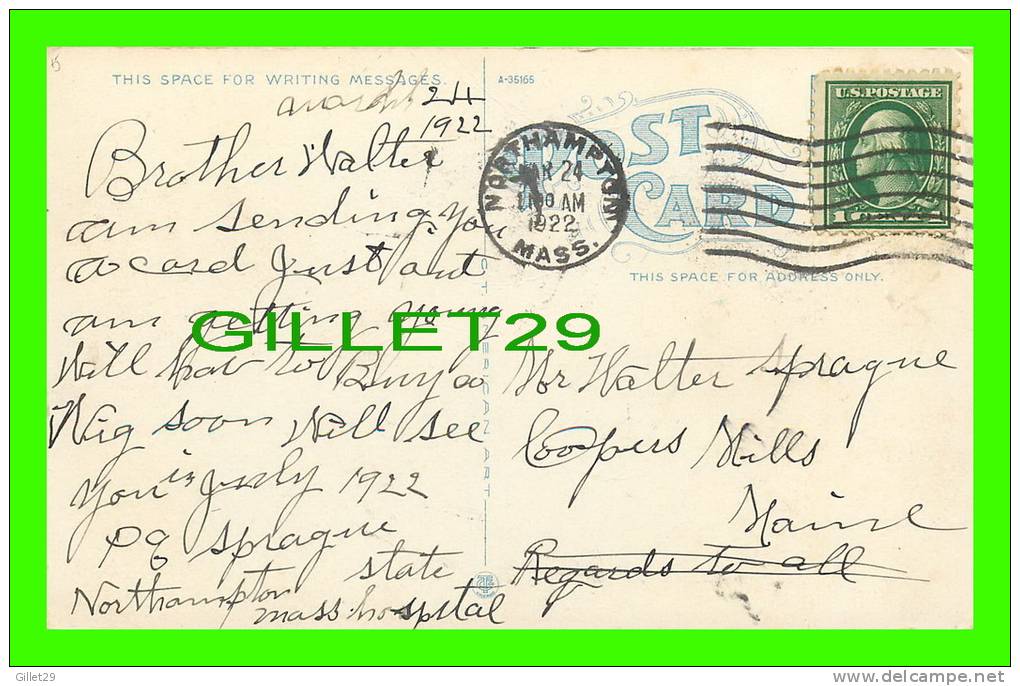 THIS SPACE FOR WRITING MESSAGES.
A-35165
march 24
1922
Brother Walter
am sending you
a card Just out
am getting young
Will hav to Buy a
Wig soon Will see
you in July 1922
P G Sprague
Northampton state
mass. hospital
C.T. AMERICAN ART
POST
CARD
NORTHAMPTON
MAR 24
11 00 AM
1922
MASS.
U.S. POSTAGE
1 CENT 1
THIS SPACE FOR ADDRESS ONLY.
Mr Walter Sprague
Coopers Mills
Maine
Regards to all
GILLET29
Gillet29
www.delcampe.net